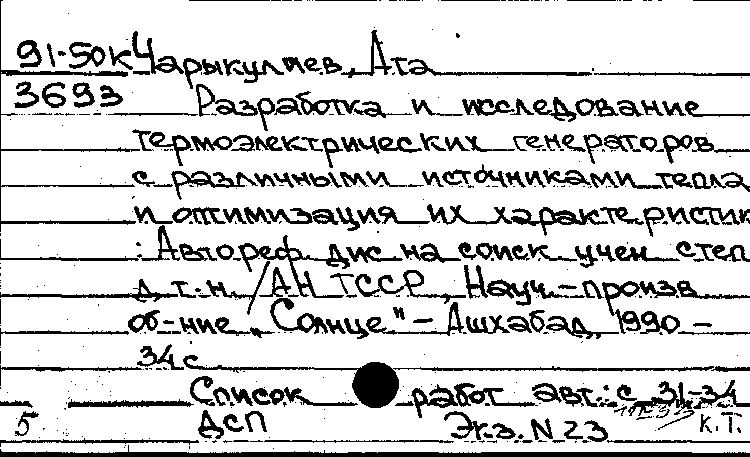 91-50к Чарыкулиев, Ата
3693 Разработка и исследование
термоэлектрических генераторов
с различными источниками тепла
и оптимизация их характеристик
: Автореф. дис на соиск учен степ
д. т. н. /АН ТССР, Науч.-произв
об-ние „Солнце" - Ашхабад, 1990 -
34 с
Список работ авт.: с 31-34
5 ДСП Экз. N 23 К.Т.